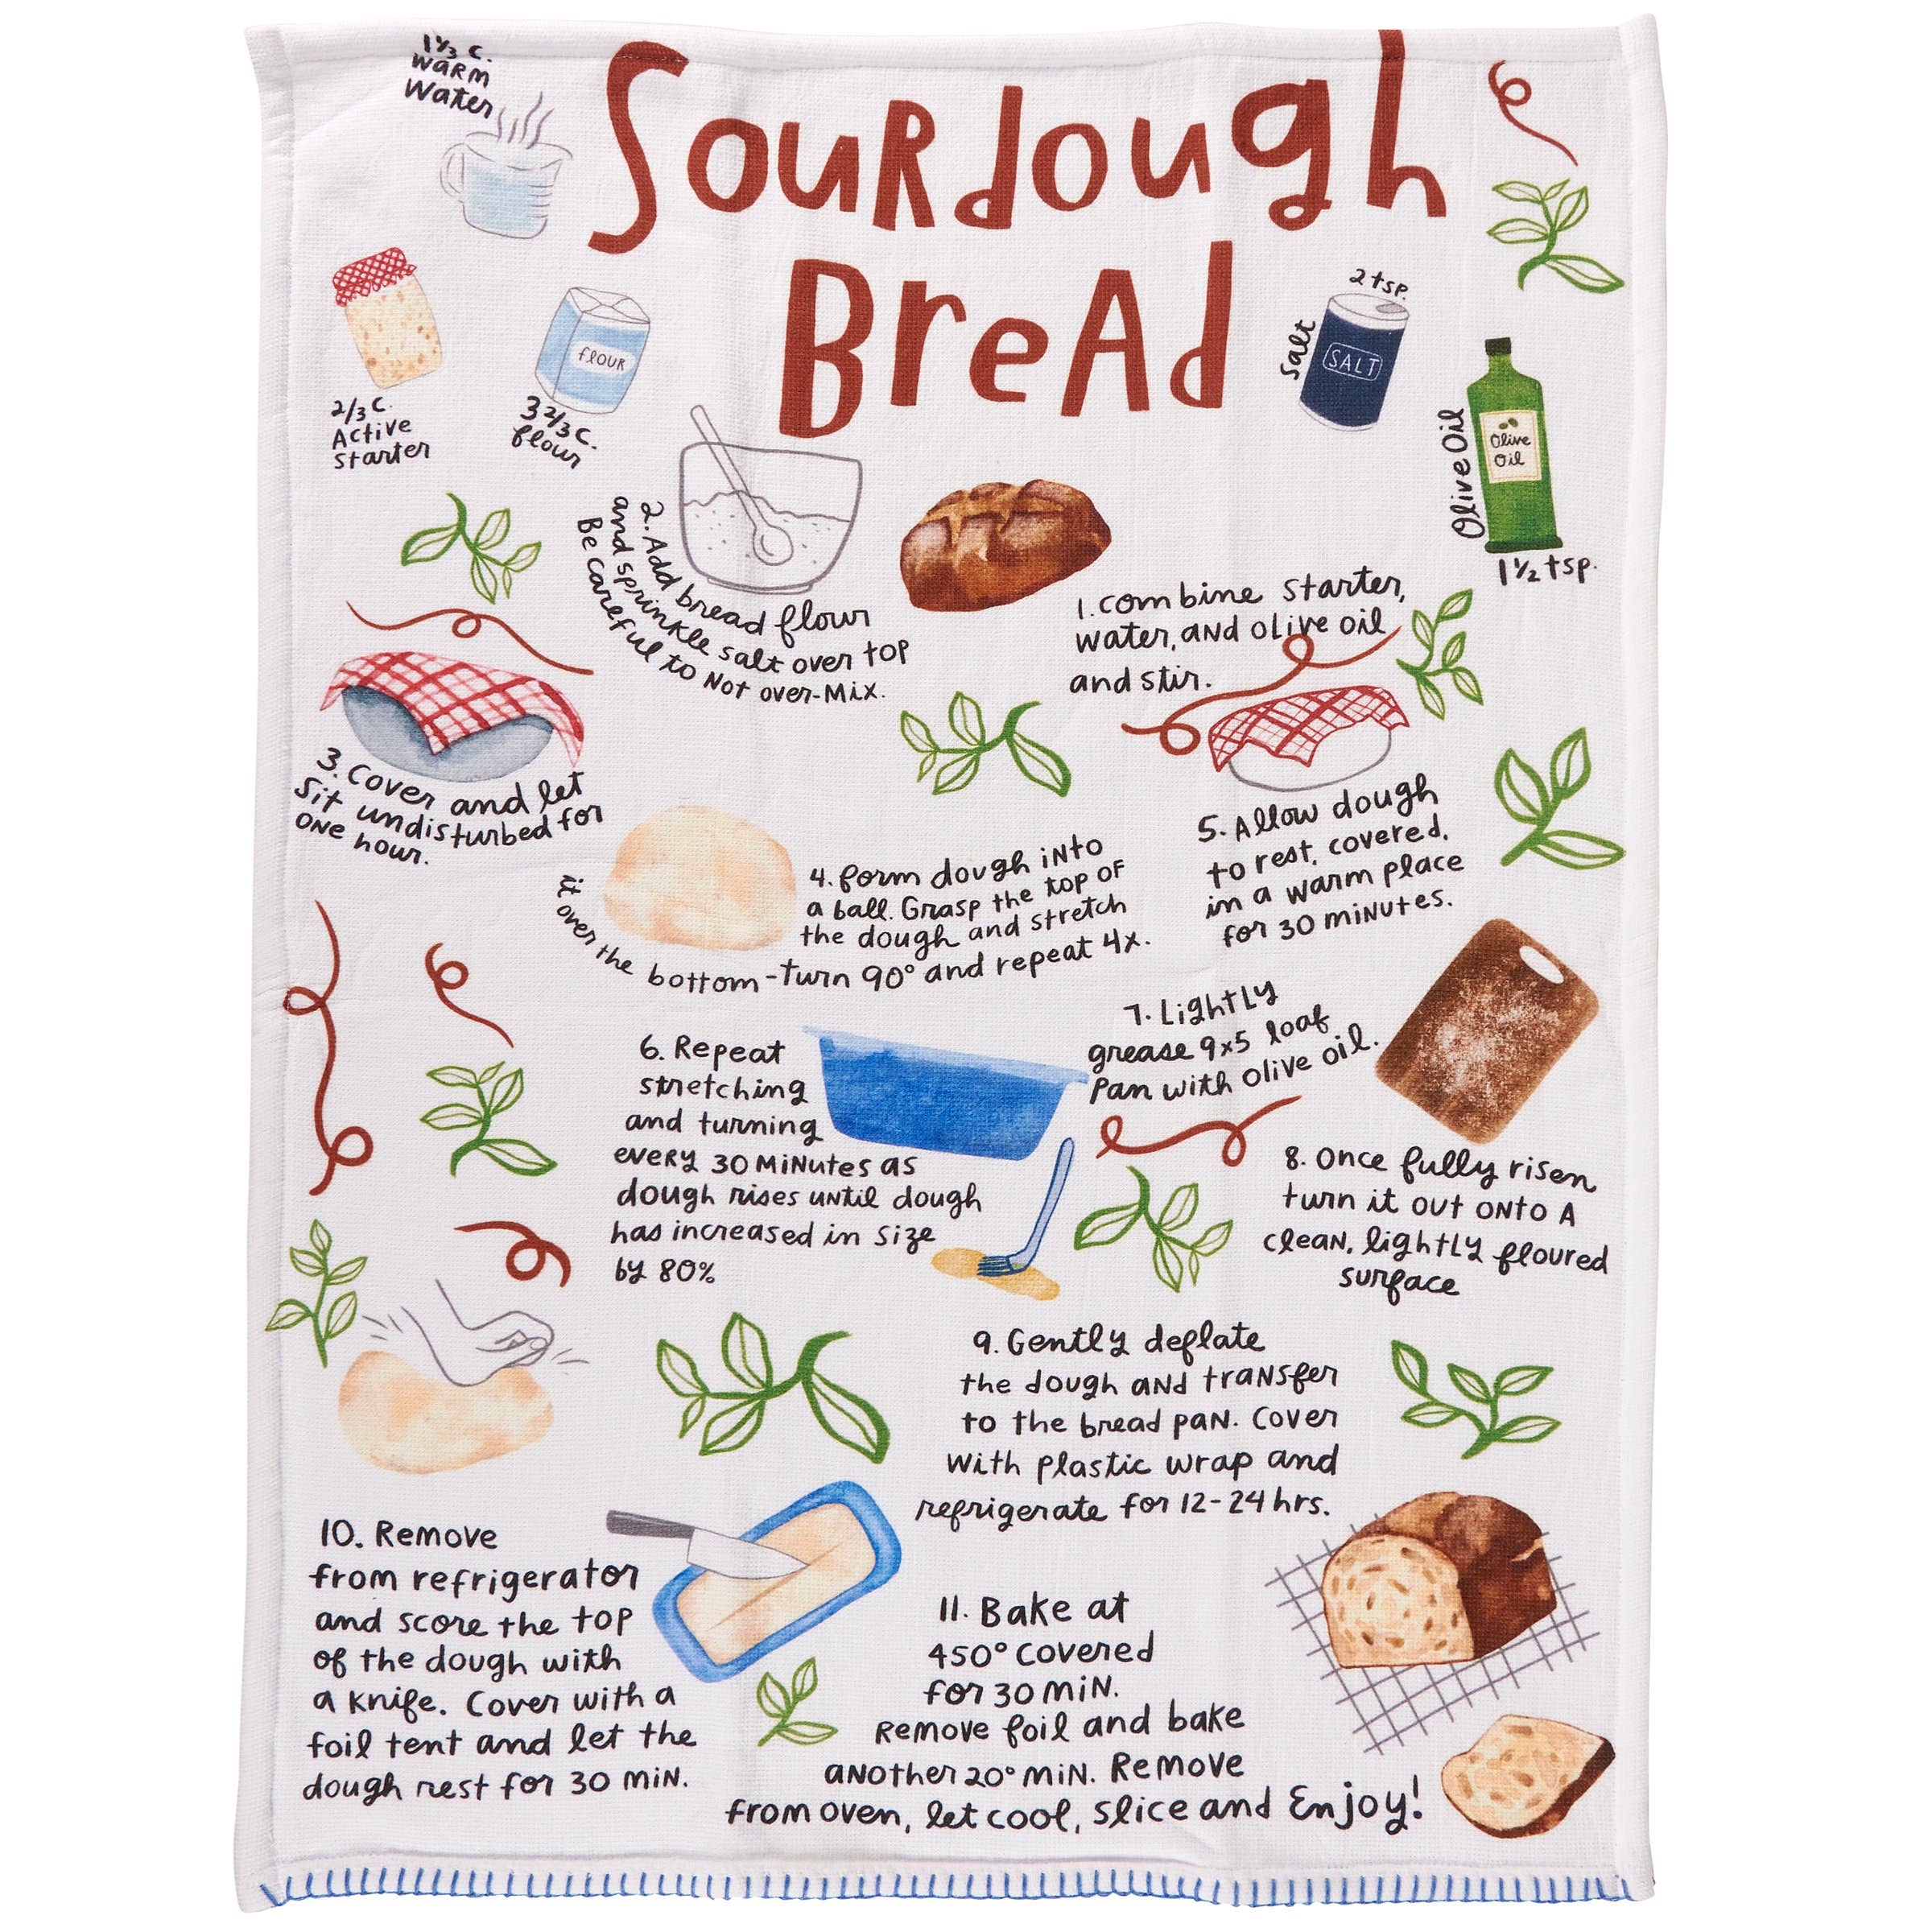 Sourdough
Bread
1 1/3 c.
warm
Water
2/3 c.
Active
starter
flour
3 2/3 c.
flour
2 tsp.
Salt
SALT
Olive Oil
Olive
Oil
1 1/2 tsp.
1. combine starter,
water, and olive oil
and stir.
2. Add bread flour
and sprinkle salt over top
Be careful to Not over-Mix.
3. Cover and let
Sit undisturbed for
one hour.
4. form dough into
a ball. Grasp the top of
the dough and stretch
it over the bottom - turn 90° and repeat 4x.
5. Allow dough
to rest, covered,
in a warm place
for 30 minutes.
6. Repeat
stretching
and turning
every 30 minutes as
dough rises until dough
has increased in size
by 80%
7. Lightly
grease 9x5 loaf
pan with olive oil.
8. once fully risen
turn it out onto a
clean, lightly floured
surface
9. Gently deflate
the dough and transfer
to the bread pan. Cover
with plastic wrap and
refrigerate for 12-24 hrs.
10. Remove
from refrigerator
and score the top
of the dough with
a knife. Cover with a
foil tent and let the
dough rest for 30 min.
11. Bake at
450° covered
for 30 min.
Remove foil and bake
another 20° min. Remove
from oven, let cool, slice and Enjoy!